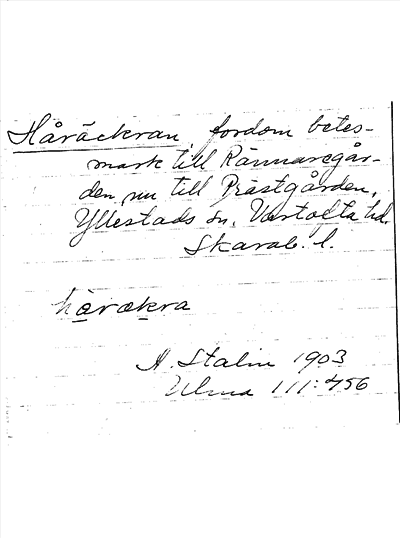 Håräckran fordom betes-
mark till Rännaregår-
den, nu till Prästgården,
Yllestads sn, Vartofta hd.
Skarab. l.
håraekra
A. Stalin 1903
Ulma 111:456